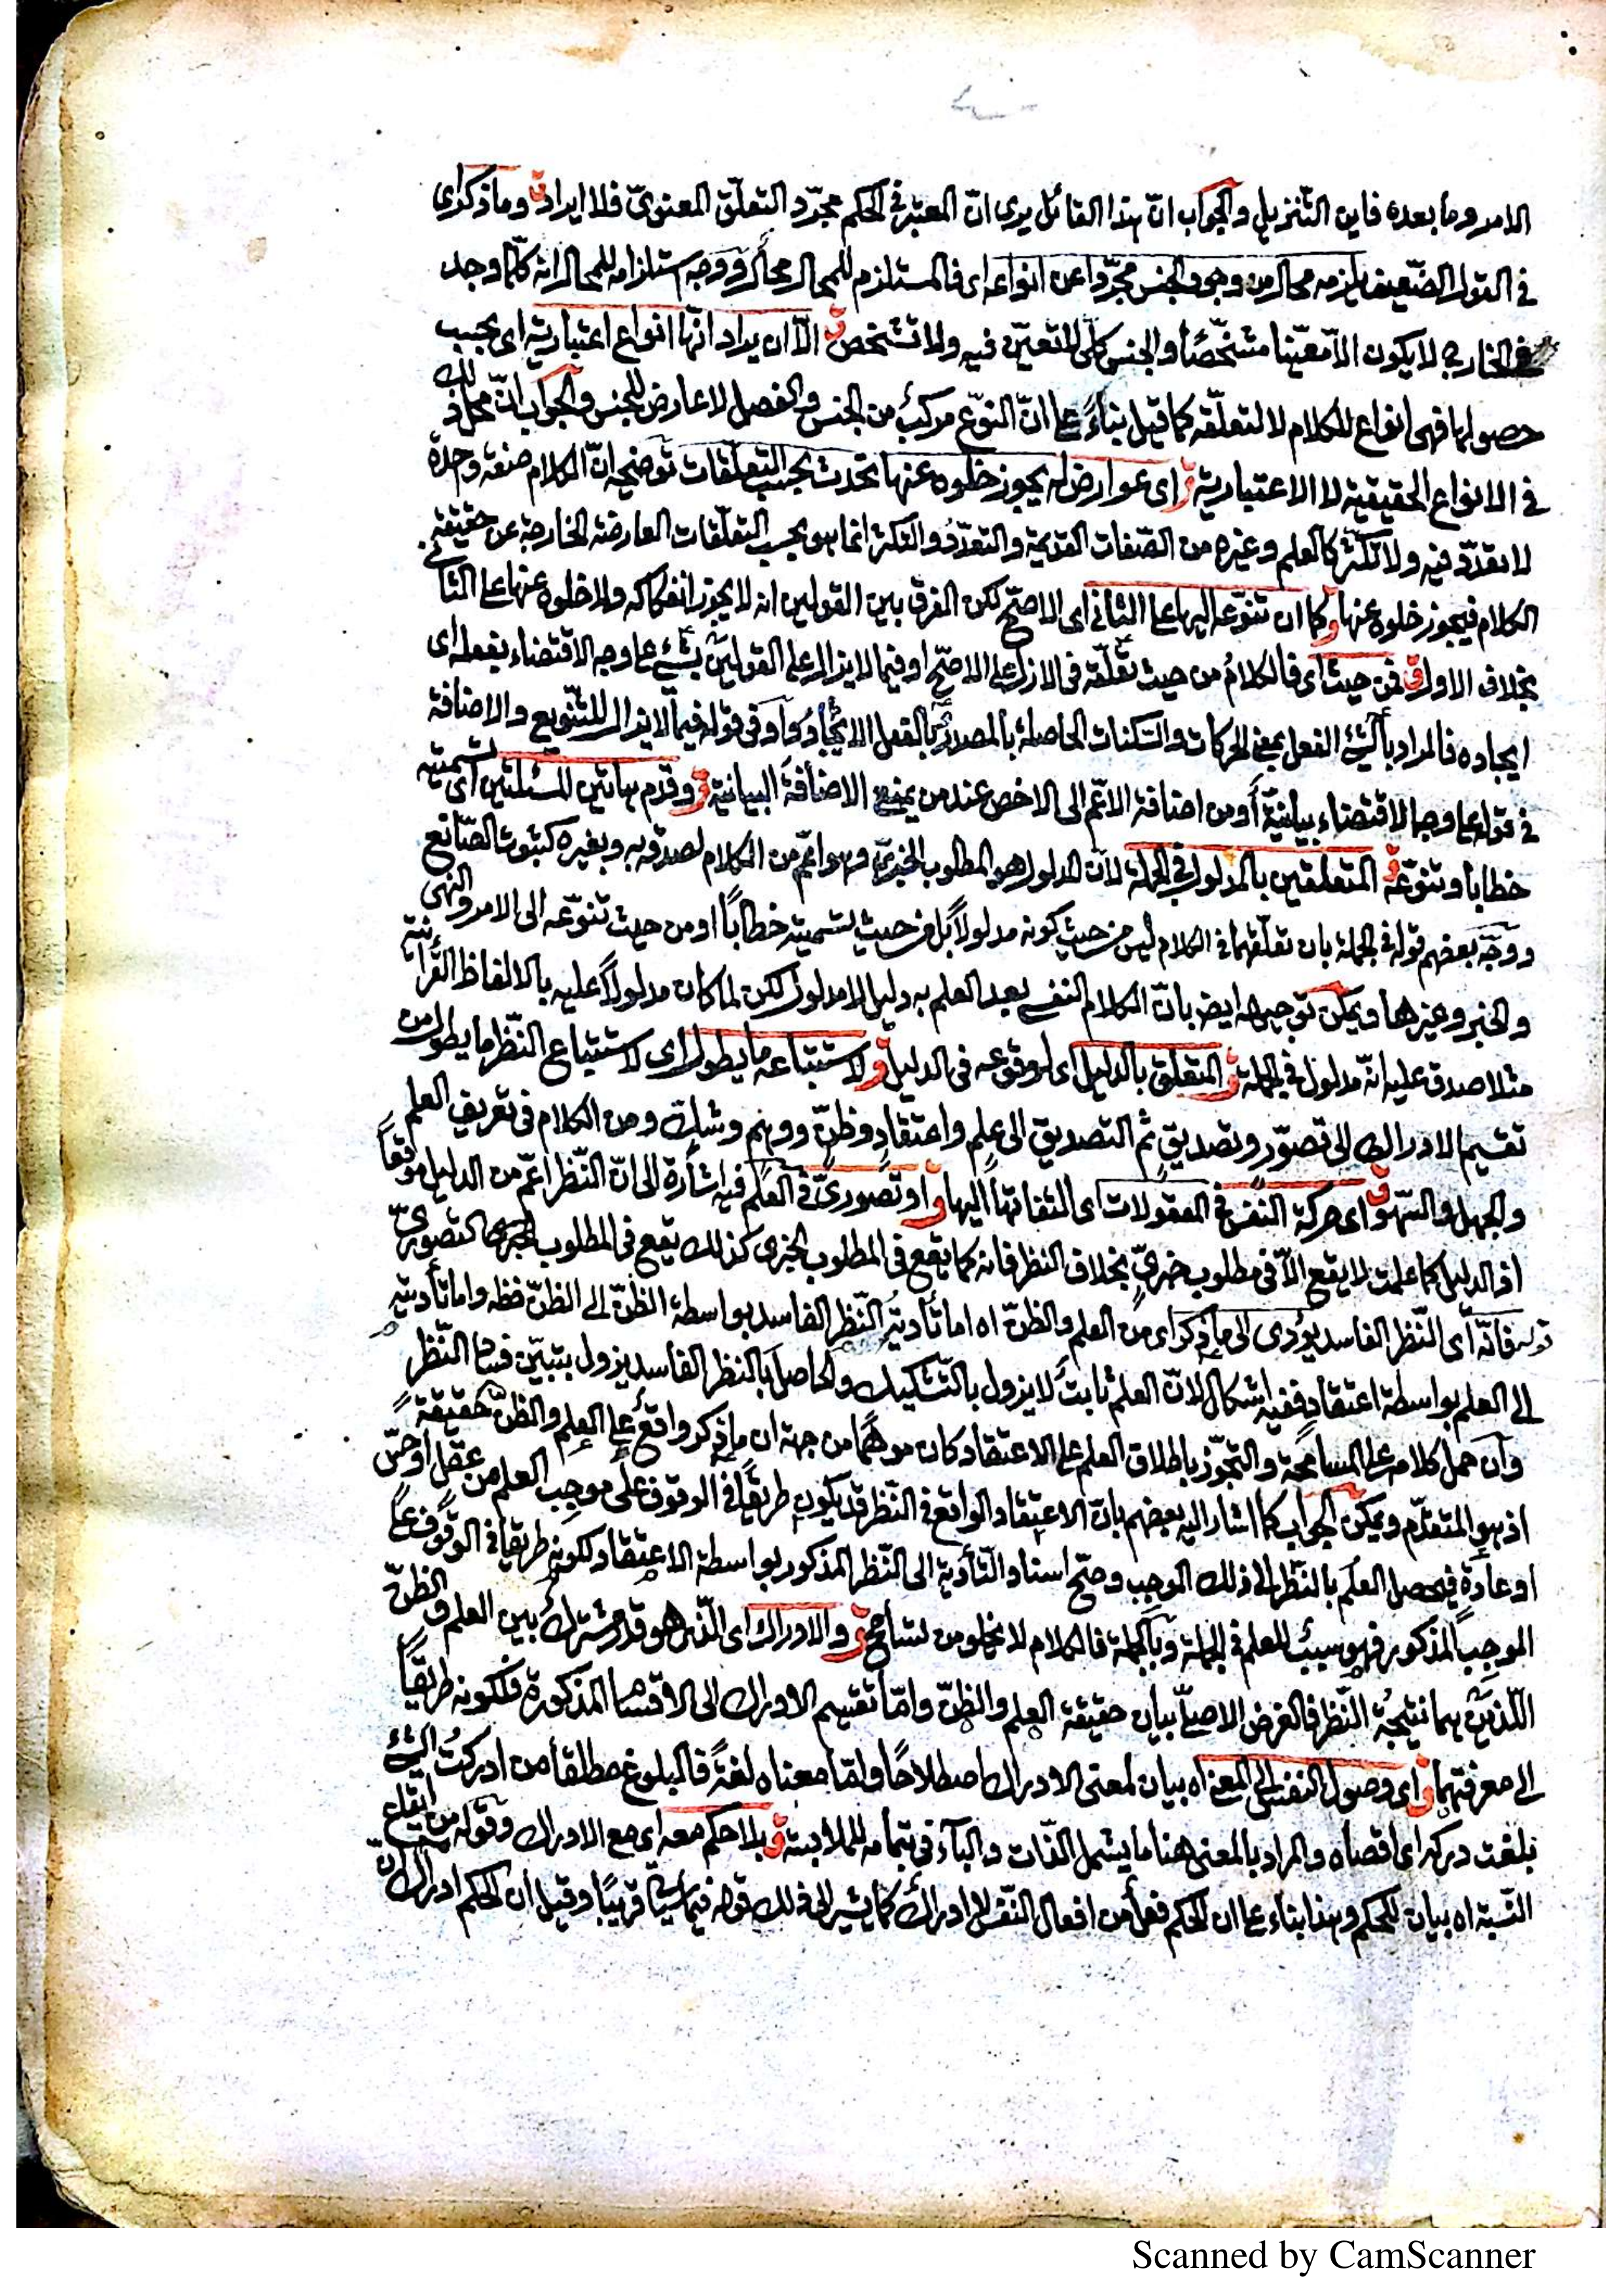 الامر وما بعده فاين التنزيل والجواب انّ هذا القائل يرى انّ المعتبر في الحكم مجرّد التعلّق المعنويّ فلا ايراد ق وما ذكر اى
في القول الضّعيف يلزمه محال من وجود الجنس مجرّدا عن انواعه اى فالمستلزم للمحال محال ووجه استلزامه للمحال انه كلّما وجد
في الخارج لا يكون الاّ معيّنا متشخّصاً والجنس كلّى لا تعيّن فيه ولا تشخص ق الاّ ان يراد انّها انواع اعتبارية اى بحسب
حصولها فهى انواع للكلام لا لتعلّقه كما قيل بناءً على انّ النوع مركب من الجنس والفصل لا عارض للجنس والجواب انّ محل ذلك
في الانواع الحقيقية لا الاعتبارية ق اى عوارض له يجوز خلوه عنها تحدث بحسب التعلّقات توضيحه انّ الكلام صفة وحدة
لا تعدّد فيه ولا تكثّر كالعلم وغيره من الصّفات القديمة والتعدّد والتكثر انما هو بحسب التعلّقات العارضة الخارجة عن حقيقة
الكلام فيجوز خلوه عنها ق كما ان تنوّعه اليها على الثانى اى الاصحّ لكن الفرق بين القولين انه لا يجوز انفكاكه ولا خلوه عنها على الثانى
بخلاف الاول ق فمن حيث اى فالكلام من حيث تعلّقه فى الازل على الاصحّ او فيما لا يزال على القولين بشئ على وجه الاقتضاء بفعله اى
ايجاده فالمراد بالشئ الفعل بمعنى الحركات والسّكنات الحاصلة بالمصدر وبالفعل الايجاد واو فى قوله فيما لا يزال للتّنويع والاضافة
في قوله على وجه الاقتضاء بيانيّة او من اضافة الاعمّ الى الاخص عند من يمنع الاضافة البيانية ق وقدم هاتين المسئلتين اى تسميته
خطابا وتنوّعه ق المتعلقين بالمدلول في الجملة لانّ المدلول هو المطلوب الخبريّ وهو اعمّ من الكلام لصدقه به وبغيره كثبوت الصّانع
ووجّه بعضهم قوله في الجملة بان تعلّقهما فى الكلام ليس من حيث كونه مدلولاً بل من حيث تسميته خطاباً او من حيث تنوّعه الى الامر والنهى
والخبر وغيرها ويمكن توجيهه ايضا بانّ الكلام النفسى بعد العلم به دليل لا مدلول لكن لما كان مدلولاً عليه بالالفاظ القرآنية
مثلا صدق عليه انّه مدلول في الجملة ق المتعلق بالدليل اى لوقوعه فى الدليل ق ولاستتباعه ما يطول اى لاستتباع النّظر ما يطول من
تقسيم الادراك الى تصوّر وتصديق ثم التصديق الى علم واعتقاد وظنّ ووهم وشكّ ومن الكلام فى تعريف العلم
والجهل والسّهو ق اى حركة النّفس في المعقولات اى التفاتها اليها ق او تصوريّ في العلم فيه اشارة الى انّ النّظر اعمّ من الدليل موقعاً
اذ الدليل كما علمت لا يقع الاّ فى مطلوب خبريّ بخلاف النظر فانه كما يقع فى المطلوب الخبرى كذلك يقع فى المطلوب التصوريّ
قوله فانّه اى النّظر الفاسد يؤدى الى ما ذكر اى من العلم والظنّ اه اما تأدية النّظر الفاسد بواسطة الظنّ الى الظنّ فظه واما تأديته
الى العلم بواسطة اعتقاد ففيه اشكال لانّ العلم ثابت لا يزول بالتّشكيك والحاصل بالنظر الفاسد يزول بتبيّن فساد النّظر
وان حمل كلامه على المسامحة والتجوّز باطلاق العلم على الاعتقاد كان موهماً من جهة ان ما ذكر واقع على العلم والظنّ حقيقة
اذ هو المتقدّم ويمكن الجواب كما اشار اليه بعضهم بانّ الاعتقاد الواقع فى النّظر قد يكون طريقاً فى الوقوف على موجب العلم من عقل او حسّ
او عادة فيحصل العلم بالنّظر الى ذلك الموجب وصحّ اسناد التّأدية الى النّظر المذكور بواسطة الاعتقاد لكونه طريقا في الوقوف على
الموجب المذكور فهو سبب للعلم في الجملة وبالجملة فالكلام لا يخلو من تسامح ق والادراك اى الّذى هو قدر مشترك بين العلم والظنّ
اللّذين هما نتيجة النّظر فالغرض الاصلىّ بيان حقيقة العلم والظنّ وامّا تقسيم الادراك الى الاقسام المذكورة فلكونه طريقاً
الى معرفتهما ق اى وصول النفس الى المعنى اه بيان لمعنى الادراك اصطلاحًا وامّا معناه لغةً فالبلوغ مطلقا من ادركتُ الشئ
بلغت دركه اى اقصاه والمراد بالمعنى هنا ما يشمل الذّات والباء فى بتمامه للملابسة ق بلا حكم معه اى مع الادراك وقوله من ايقاع
النّسبة اه بيان للحكم وهذا بناء على ان الحكم فعل من افعال النّفس لا ادراك كما يشير الى ذلك قوله فيما سيأتى قريبًا وقيل ان الحكم ادراك انّ
Scanned by CamScanner